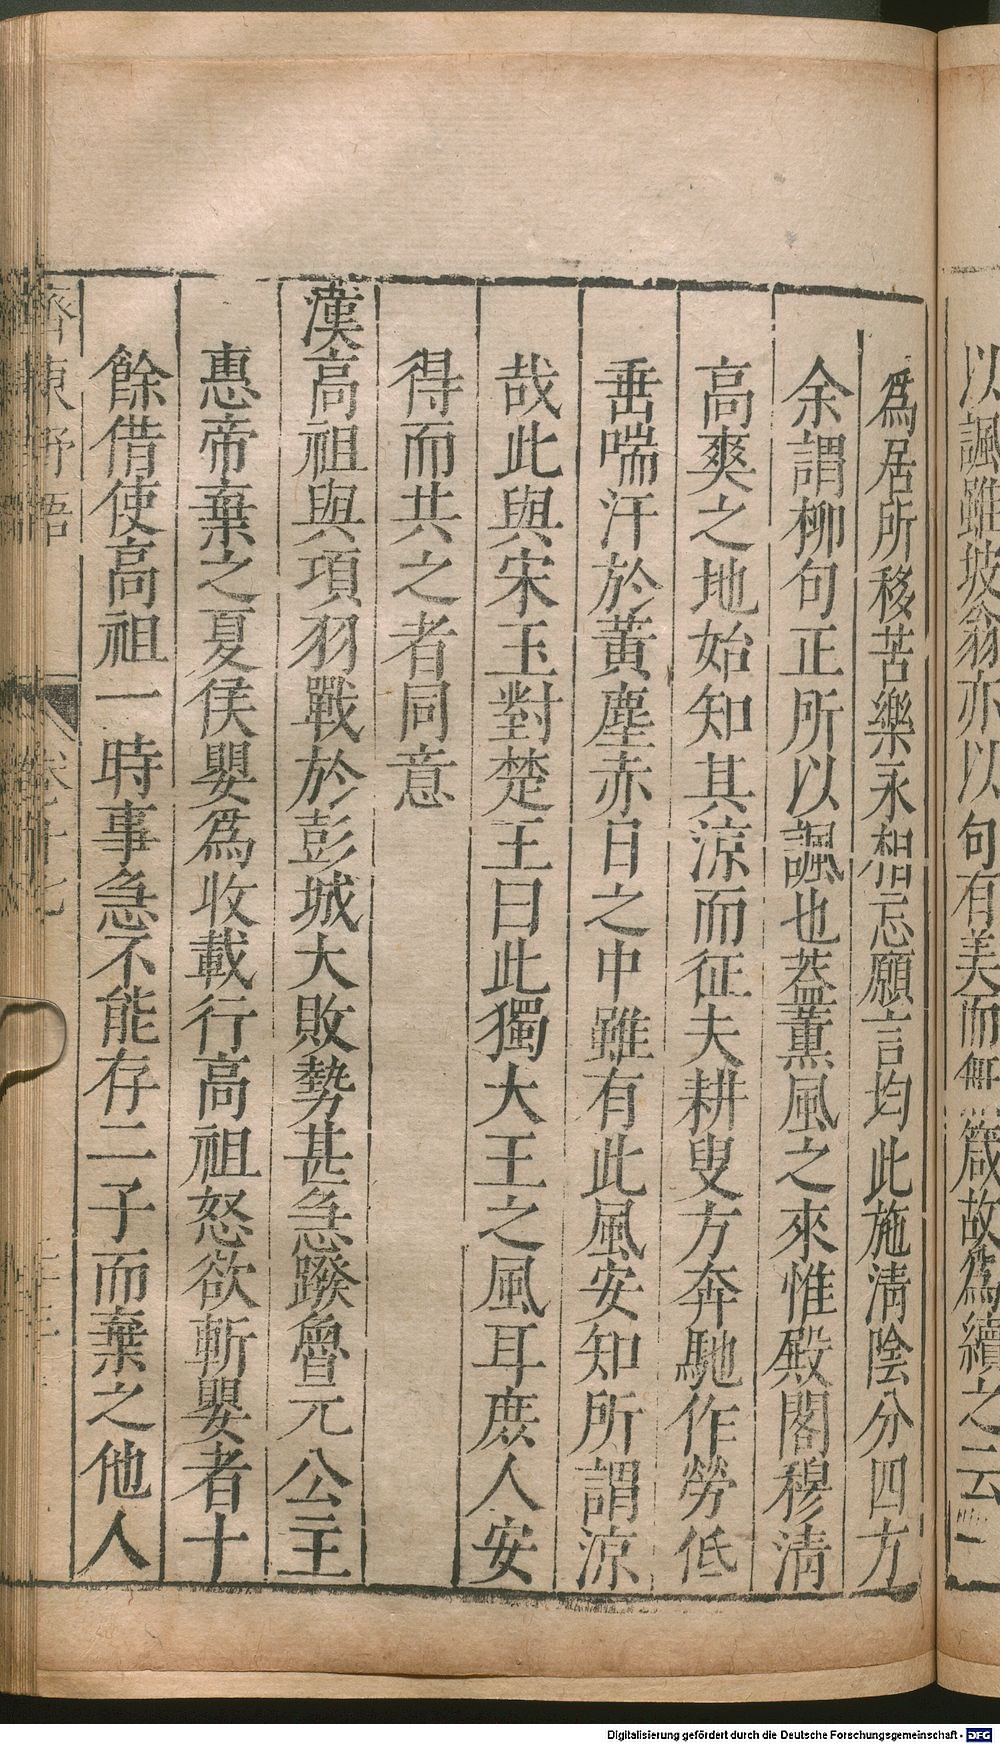 以諷雖坡翁亦以句有美而無箴故爲續之云一
爲居所移苦樂永相忘願言均此施清陰分四方
余謂柳句正所以諷也蓋薰風之來惟殿閣穆清
高爽之地始知其涼而征夫耕叟方奔馳作勞低
垂喘汗於黃塵赤日之中雖有此風安知所謂涼
哉此與宋玉對楚王曰此獨大王之風耳庶人安
得而共之者同意
漢高祖與項羽戰於彭城大敗勢甚急蹳魯元公主
惠帝棄之夏侯嬰爲收載行高祖怒欲斬嬰者十
餘借使高祖一時事急不能存二子而棄之他人
齊東野語
卷十七
Digitalisierung gefördert durch die Deutsche Forschungsgemeinschaft - DFG